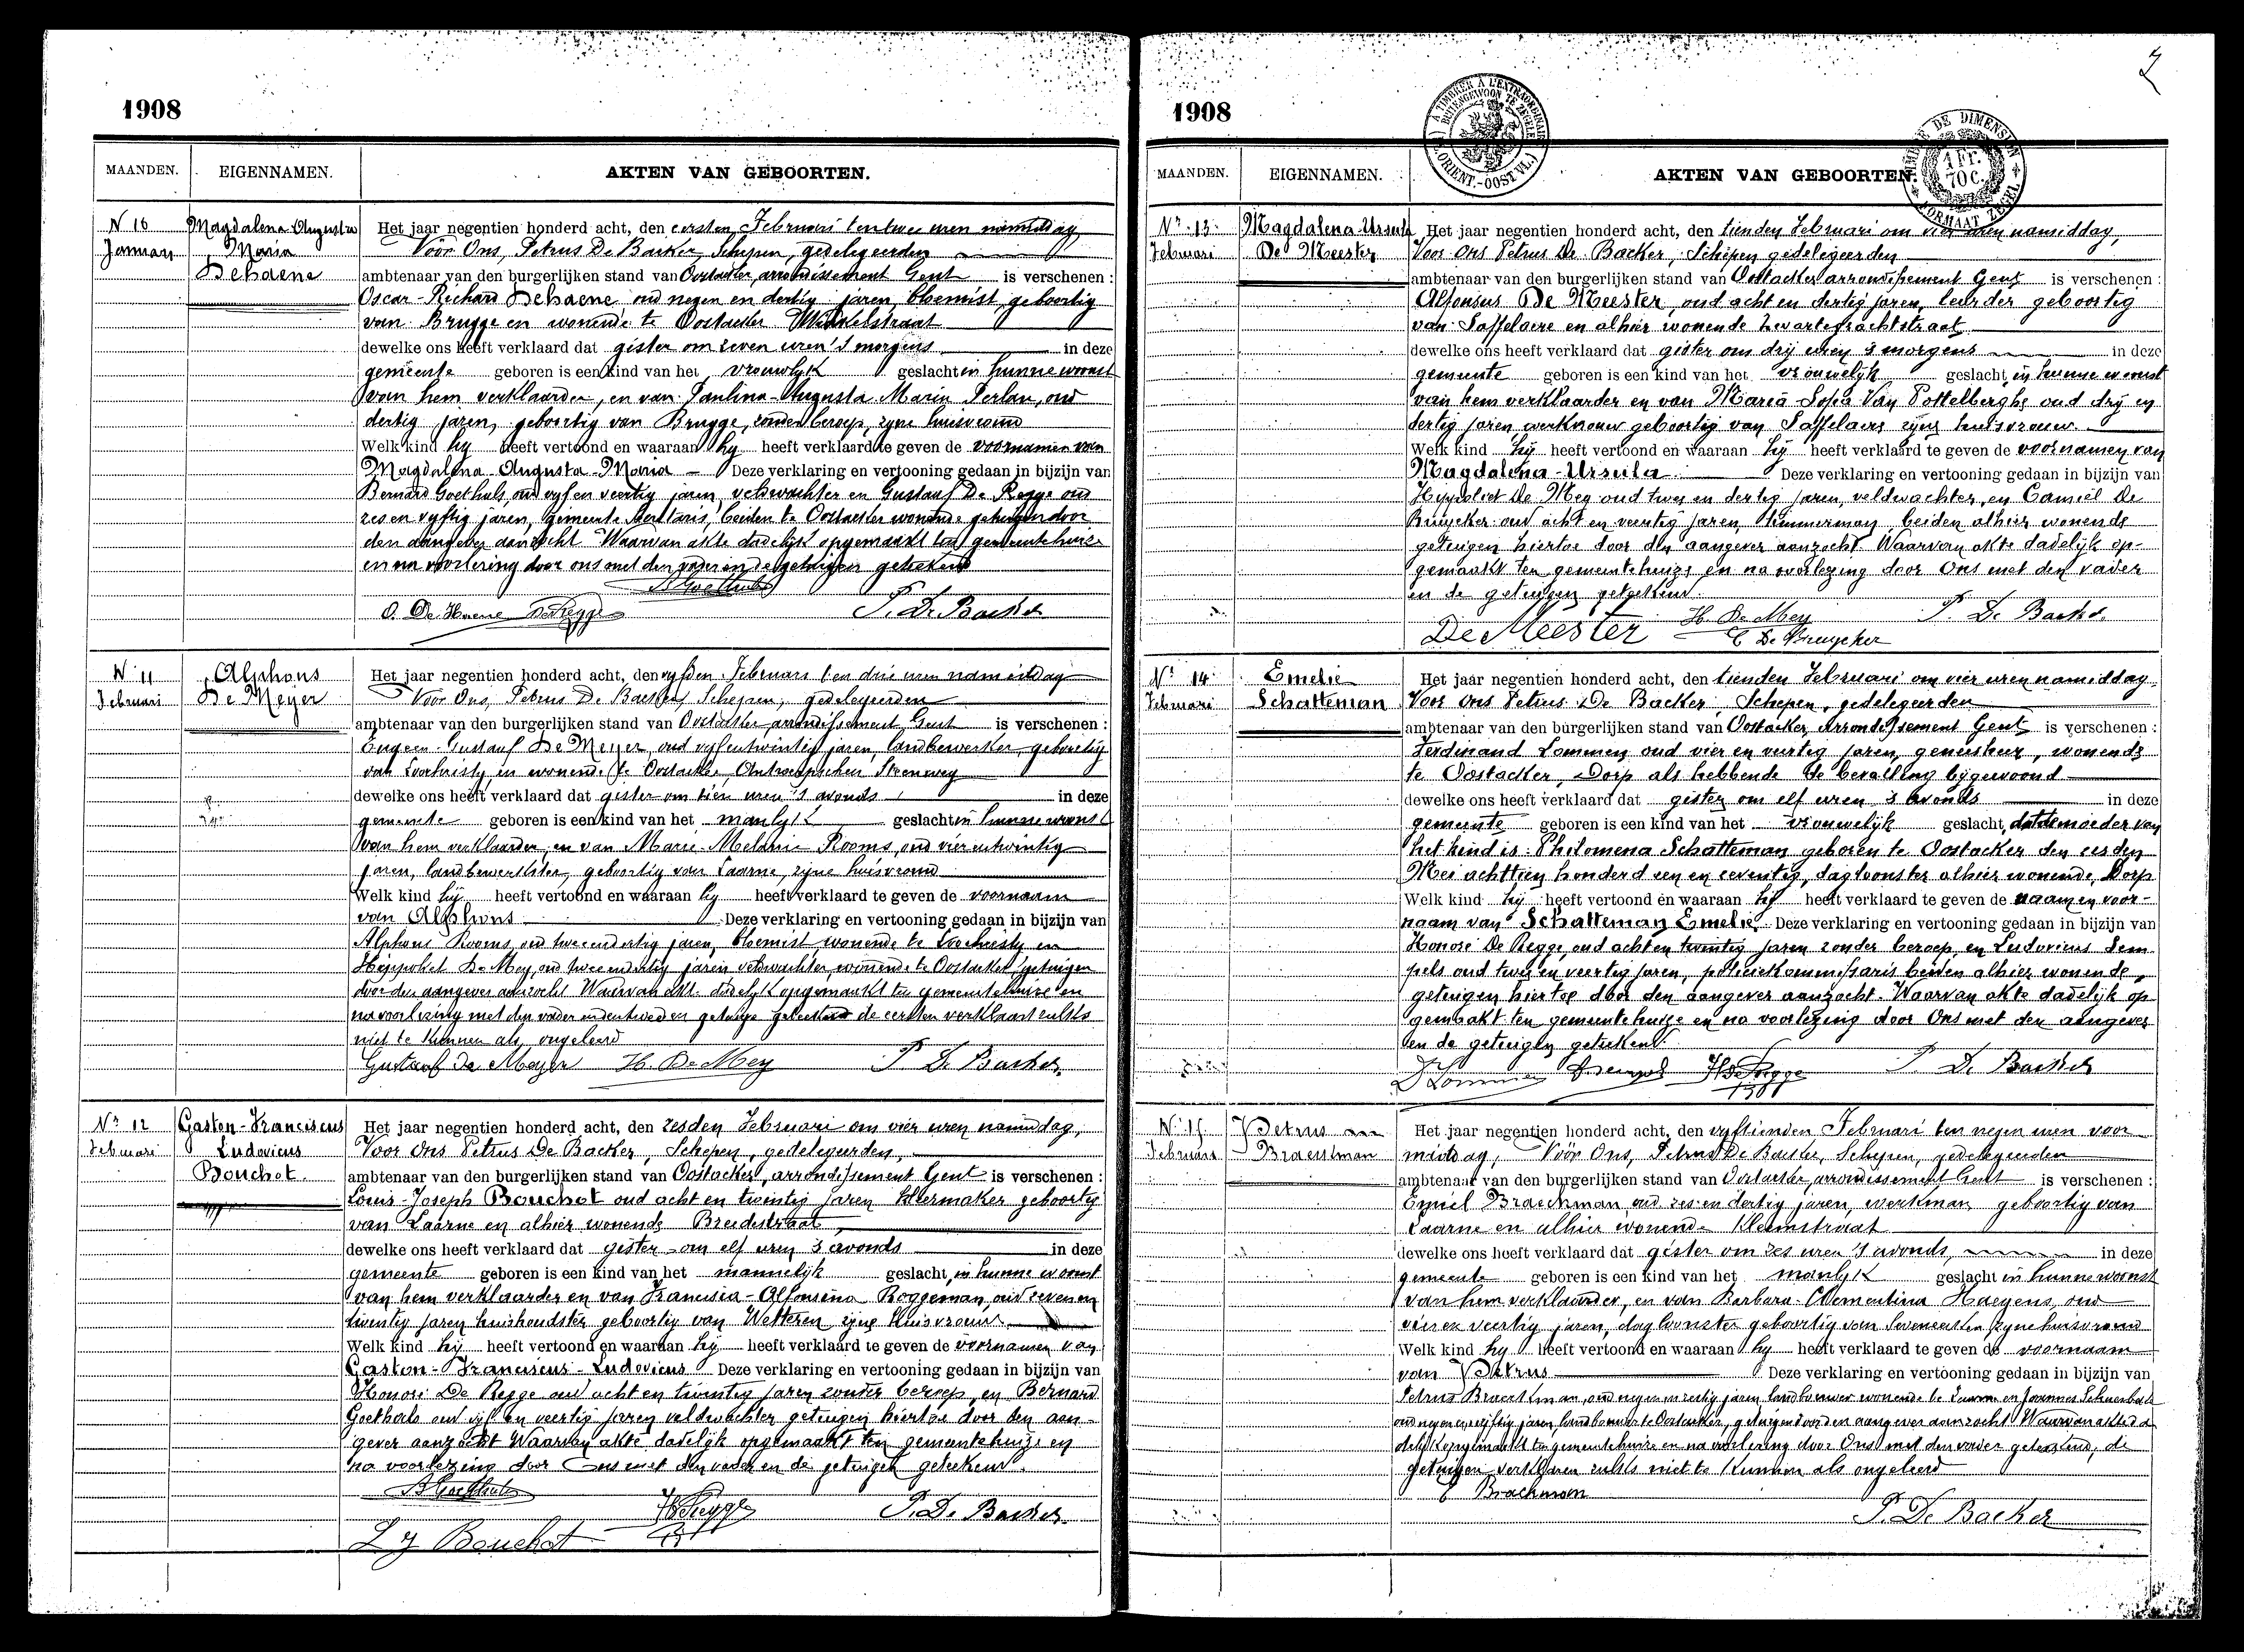 1908
MAANDEN. EIGENNAMEN. AKTEN VAN GEBOORTEN.
N 10 Magdalena Augusta
Januari Maria
Dehaene
Het jaar negentien honderd acht, den eersten Februari ten twee uren namiddag
Vóór Ons, Petrus De Backer, Schepen, gedelegeerden
ambtenaar van den burgerlijken stand van Oostacker, arrondissement Gent is verschenen :
Oscar-Richard Dehaene oud negen en dertig jaren, bloemist, geboortig
van Brugge en wonende te Oostacker
dewelke ons heeft verklaard dat gister om zeven uren 's morgens in deze
gemeente geboren is een kind van het vrouwlyk geslacht in hunne woonst
van hem verklaarder, en van Paulina-Augusta Maria Perlau, oud
dertig jaren, geboortig van Brugge, zonder beroep, zyne huisvrouw
Welk kind hy heeft vertoond en waaraan hy heeft verklaard te geven de voornamen van
Magdalena-Augusta-Maria - Deze verklaring en vertooning gedaan in bijzijn van
Bernard Goethals, oud vyf en veertig jaren, veldwachter en Gustaaf De Regge oud
zes en vyftig jaren, gemeente Secretaris, beiden te Oostacker wonende getuigen door
den aangever aanzocht Waarvan akte dadelijk opgemaakt ten gemeentehuize
en na voorlezing door ons met den vader en de getuigen geteekend
B Goethals
O. De Haene DeRegge P. De Backer
N. 11 Alphons
Februari De Meyer
Het jaar negentien honderd acht, den vyfden Februari ten drie uren namiddag
Vóór Ons, Petrus De Backer, Schepen, gedelegeerden
ambtenaar van den burgerlijken stand van Oostacker, arrondissement Gent is verschenen :
Eugeen-Gustaaf De Meyer, oud vyfentwintig jaren, landbewerker, geboortig
van Loochristy en wonende te Oostacker Antwerpschen Steenweg
dewelke ons heeft verklaard dat gister om tien uren 's avonds in deze
gemeente geboren is een kind van het manlyk geslacht in hunne woonst
van hem verklaarder, en van Marie-Melanie Rooms, oud vierentwintig
jaren, landbewerkster, geboortig van Laarne, zyne huisvrouw
Welk kind hy heeft vertoond en waaraan hy heeft verklaard te geven de voornaam
van Alphons Deze verklaring en vertooning gedaan in bijzijn van
Alphons Rooms, oud tweeendertig jaren, bloemist wonende te Loochristy en
Hyppoliet De Mey, oud tweeendertig jaren veldwachter, wonende te Oostacker, getuigen
door den aangever aanzocht Waarvan akte dadelyk opgemaakt ten gemeentehuize en
na voorlezing met den vader en den tweeden getuige geteekend de eersten verklaart zulks
niet te kunnen als ongeleerd
Gustaaf De Meyer H. De Mey P. De Backer
Nr 12 Gaston-Franciscus
Februari Ludovicus
Bouchot.
Het jaar negentien honderd acht, den zesden Februari om vier uren namiddag,
Voor Ons Petrus De Backer, Schepen, gedelegeerden,
ambtenaar van den burgerlijken stand van Oostacker, arrondissement Gent is verschenen :
Louis-Joseph Bouchot oud acht en twintig jaren kleermaker geboortig
van Laarne en alhier wonende Breedestraat
dewelke ons heeft verklaard dat gister om elf uren 's avonds in deze
gemeente geboren is een kind van het mannelyk geslacht, in hunne woonst
van hem verklaarder en van Francisca-Alfonsina Roggeman, oud zeven en
twintig jaren huishoudster geboortig van Wetteren zijne huisvrouw
Welk kind hij heeft vertoond en waaraan hij heeft verklaard te geven de voornamen van
Gaston-Franciscus-Ludovicus Deze verklaring en vertooning gedaan in bijzijn van
Honoré De Regge oud acht en twintig jaren zonder beroep, en Bernard
Goethals oud vijf en veertig jaren veldwachter getuigen hiertoe door den aan-
gever aanzocht Waarvan akte dadelijk opgemaakt ten gemeentehuize en
na voorlezing door Ons met den vader en de getuigen geteekend.
B Goethals
HDeRegge P. De Backer
L J Bouchot
1908
MAANDEN. EIGENNAMEN. AKTEN VAN GEBOORTEN.
Nr 13 Magdalena-Ursula
Februari De Meester
Het jaar negentien honderd acht, den tienden Februari om vier uren namiddag,
Voor Ons Petrus De Backer, Schepen gedelegeerden
ambtenaar van den burgerlijken stand van Oostacker arrondissement Gent is verschenen :
Alfonsus De Meester, oud acht en dertig jaren, leurder geboortig
van Saffelaere en alhier wonende
dewelke ons heeft verklaard dat gister om drij uren 's morgens in deze
gemeente geboren is een kind van het vrouwelijk geslacht, in hunne woonst
van hem verklaarder en van Maria-Sofia Van Postelberghe oud drij en
dertig jaren werkvrouw geboortig van Saffelaere zijne huisvrouw.
Welk kind hij heeft vertoond en waaraan hij heeft verklaard te geven de voornamen van
Magdalena-Ursula Deze verklaring en vertooning gedaan in bijzijn van
Hyppoliet De Mey oud twee en dertig jaren, veldwachter, en Camiel De
Bruycker oud acht en veertig jaren, timmerman, beiden alhier wonende
getuigen hiertoe door den aangever aanzocht. Waarvan akte dadelijk op-
gemaakt ten gemeentehuize en na voorlezing door Ons met den vader
en de getuigen geteekend.
De Meester H. De Mey P. De Backer
C De Bruycker
Nr 14 Emelie
Februari Schatteman
Het jaar negentien honderd acht, den tienden Februari om vier uren namiddag.
Voor Ons Petrus De Backer, Schepen, gedelegeerden
ambtenaar van den burgerlijken stand van Oostacker Arrondissement Gent is verschenen :
Ferdinand Lommen oud vier en veertig jaren, geneesheer, wonende
te Oostacker, Dorp als hebbende de bevalling bijgewoond
dewelke ons heeft verklaard dat gister om elf uren 's avonds in deze
gemeente geboren is een kind van het vrouwelijk geslacht, dat de moeder van
het kind is: Philomena Schatteman geboren te Oostacker den eesden
Mei achttien honderd een en zeventig, dagloonster alhier wonende, Dorp
Welk kind hij heeft vertoond en waaraan hij heeft verklaard te geven de naam en voor-
naam van Schatteman Emelie. Deze verklaring en vertooning gedaan in bijzijn van
Honoré De Regge, oud acht en twintig jaren zonder beroep, en Ludovicus Sem
pels oud twee en veertig jaren, policiekommissaris beiden alhier wonende,
getuigen hiertoe door den aangever aanzocht. Waarvan akte dadelijk op
gemaakt ten gemeentehuize en na voorlezing door Ons met den aangever
en de getuigen geteekend.
Lommen Sempels HDeRegge P. De Backer
Nr 15 Petrus
Februari Braeckman
Het jaar negentien honderd acht, den vyftienden Februari ten negen uren voor
middag, Vóór Ons, Petrus De Backer, Schepen, gedelegeerden
ambtenaar van den burgerlijken stand van Oostacker, arrondissement Gent is verschenen :
Emiel Braeckman oud zes en dertig jaren, werkman, geboortig van
Laarne en alhier wonende
dewelke ons heeft verklaard dat gister om zes uren 's avonds, in deze
gemeente geboren is een kind van het manlyk geslacht in hunne woonst
van hem verklaarder, en van Barbara-Clementina Haegens, oud
vier en veertig jaren, dagloonster geboortig van Seveneecken zyne huisvrouw
Welk kind hy heeft vertoond en waaraan hy heeft verklaard te geven de voornaam
van Petrus Deze verklaring en vertooning gedaan in bijzijn van
Petrus Braeckman, oud negen en zestig jaren landbouwer wonende te Laarne en Joannes
oud negen en vyftig jaren, landbouwer te Oostacker, getuigen door den aangever aanzocht Waarvan akte da
delyk opgemaakt ten gemeentehuize en na voorlezing door Ons met den vader geteekend, de
getuigen verklaren zulks niet te kunnen als ongeleerd
E Brachman
P. De Backer